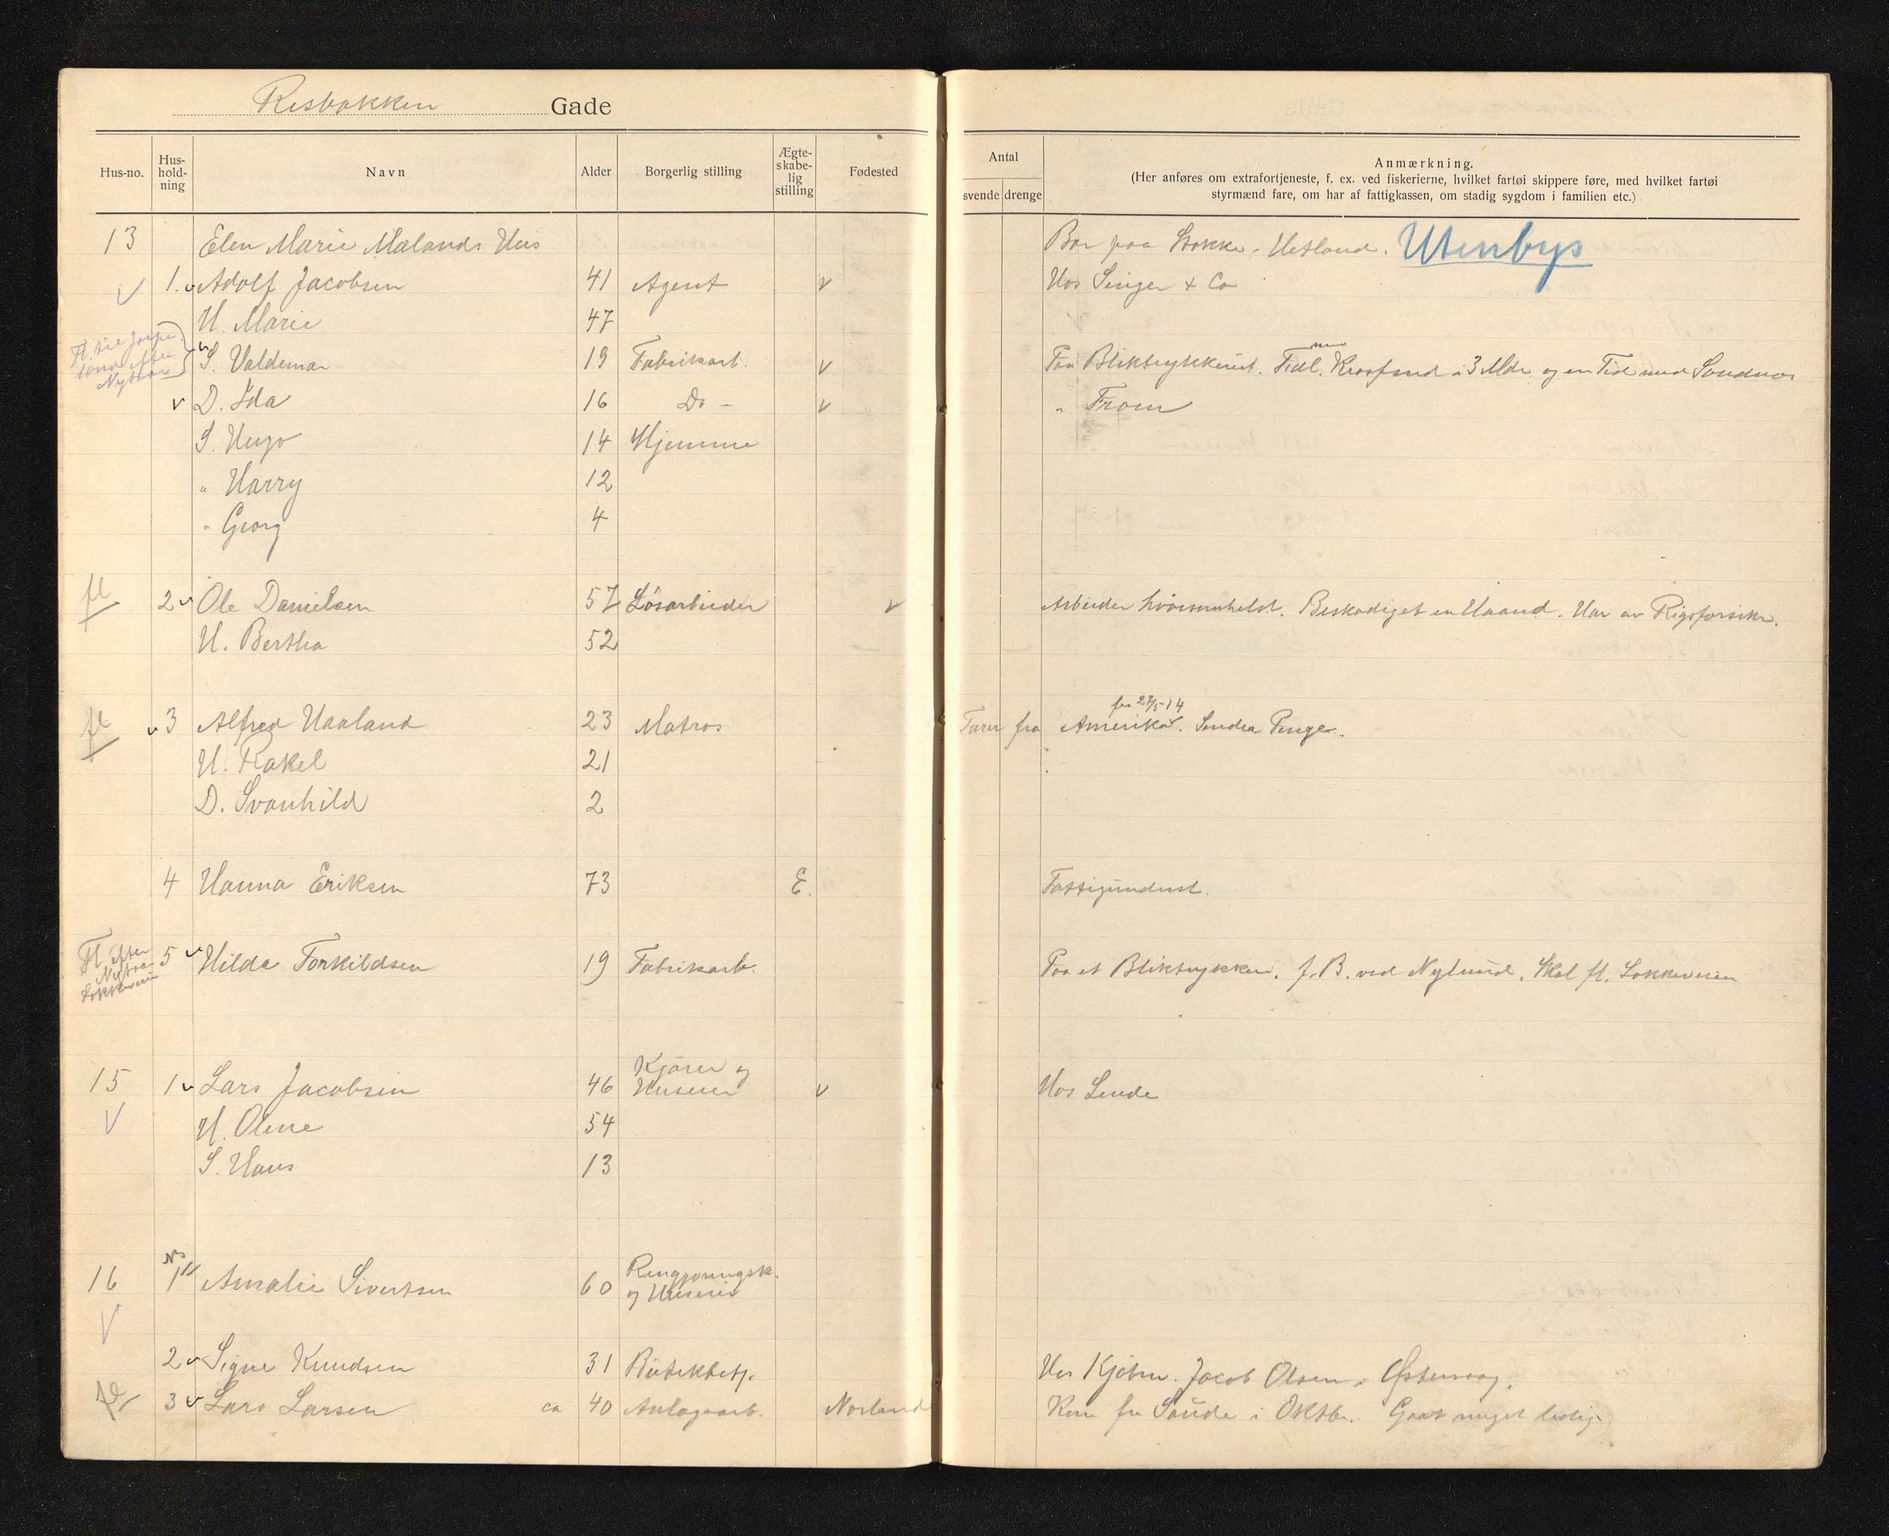 Resbakken Gade
Hus-no. Hus-hold-ning Navn Alder Borgerlig stilling Ægte-skabe-lig stilling Fødested
Antal svende drenge
Anmærkning.
(Her anføres om extrafortjeneste, f. ex. ved fiskerierne, hvilket fartøi skippere føre, med hvilket fartøi
styrmænd fare, om har af fattigkassen, om stadig sygdom i familien etc.)
13 Elen Marie Mælands Hus Bor paa Stokke, Hetland. Utenbys
1. Adolf Jacobsen 41 Agent Hos Singer & Co
H. Marie 47
Fl. til
efter Nyttaar
S. Valdemar 19 Fabrikarb. Paa Bliktrykkeriet. Tidl. i 3 Mdr og en Tid med Sandnes
D. Ida 16 Do - " From
S. Hugo 14 Hjemme
" Harry 12
" Georg 4
fl 2 Ole Danielsen 57 Løsarbeider Arbeider hvorsomhelst. Beskadiget en Haand. Har av Rigsforsikr.
H. Bertha 52
fra 27/5-14
fl 3 Alfred Haaland 23 Matros Farer fra Amerika. Sender Penge.
H. Rakel 21
D. Svanhild 2
4 Hanna Eriksen 73 E. Fattigunderst.
Fl. efter Nytaar Løkkeveien
5 Hilda Torkildsen 19 Fabrikarb. Paa et Bliktrykkeri. f. B. ved Nylund. Skal fl. Løkkeveien
15 1 Lars Jacobsen 46 Kjører og Huseier Hos Sende
H. Olene 54
S. Hans 13
16 1 Amalie Sivertsen 60 Rengjøringsk. og Huseier
2 Signe Knudsen 31 Butikbetj. Hos Kjøbm. Jacob Olsen, Østervaag.
3 Lars Larsen ca 40 Anlægsarb. Norland Kom fra Saude i Oktbr. Gaat meget ledig